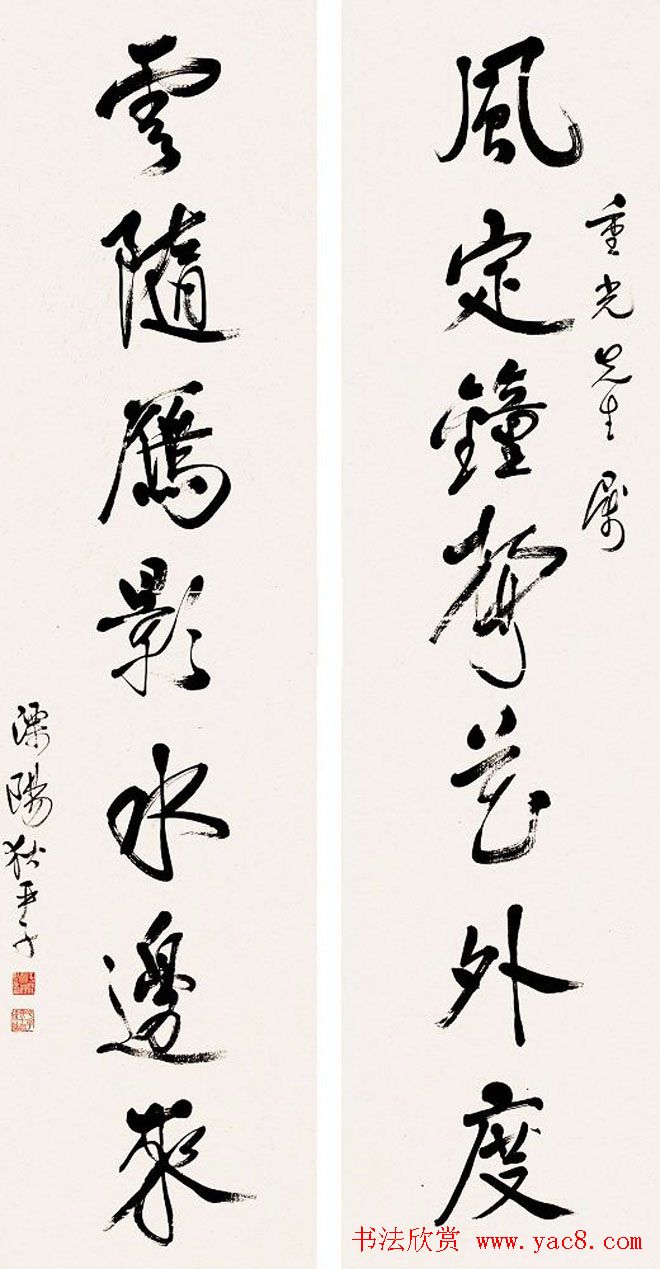 重光先生属
風定鐘聲花外度
雲隨鴈影水邊來
溧陽狄平子
书法欣赏 www.yac8.com